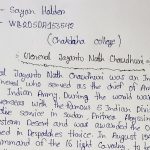 - Sayan Halder
WBQDSDA163542
(Chakdaha college)
General Jayanto Nath Chaudhuri
al Jayanto Nath Chaudhuri was an In
neral who served as the chief of Ar
Indian Army. During the world war
verseas with the famous 5 Indian Divi
ve service in Sudan, Eritrea, Abyssin
estern Desert and was awarded the o
ioned in Despatches thrice. In August 194
ommand of the 16 light Cavalry, to be